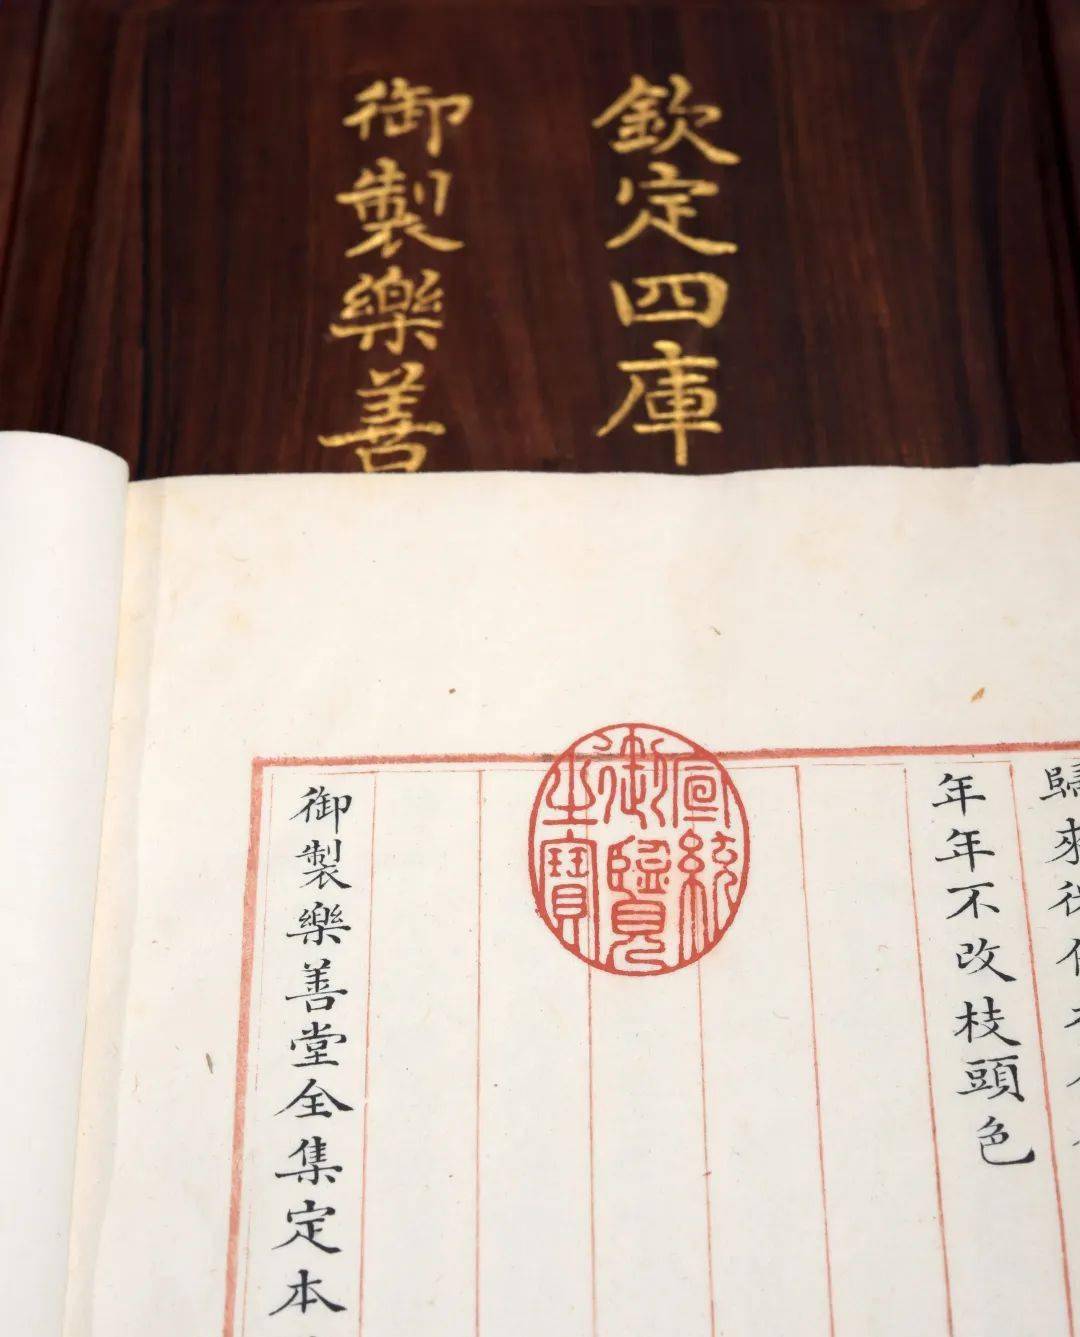 欽定四庫
御製樂善
歸來
年年不改枝頭色
宣統
御覽
之寶
御製樂善堂全集定本